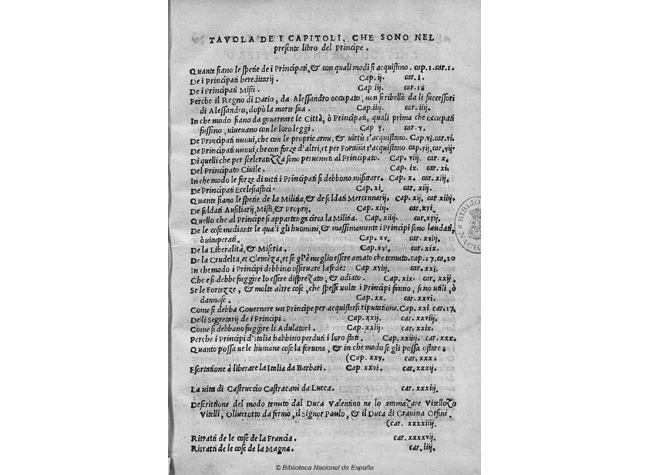 TAVOLA DE I CAPITOLI, CHE SONO NEL
presente libro del Principe.
Quante siano le spetie de i Principati, & con quali modi si acquistino. cap. 1. car. 1.
De i Principati hereditarij. Cap. ij. car. 1.
De i Principati Misti. Cap. iij. car. 1
Perche il Regno di Dario, da Alessandro occupato, non si ribellò da li successori
di Alessandro, dopò la morte sua. Cap. iiij. car. iiij.
In che modo siano da governare le Città, ò Principati, quali prima che occupati
fussino, viveuano con le loro leggi. Cap v. car. v.
De Principati nuoui, che con le proprie armi, & virtù s'acquistano. Cap. vi. car. vi.
De Principati nuoui, che con forze d'altri, et per Fortuna s'acquistano cap. vij. car. vij.
Di quelli che per sceleratezza sono peruenuti al Principato. Cap. viij. car. x.
Del Principato Ciuile. Cap. ix. car. xi.
In che modo le forze di tutti i Principati si debbono misurare. Cap. x. car. xiij.
De Principati Ecclesiastici. Cap. xi. car. xiij.
Quante siano le spetie de la Militia, & de soldati Mercennarij. Cap. xij. car. xiiij.
De soldati Ausiliarij, Misti, & Proprij. Cap. xiij. car. xvi.
Quello che al Principe si appartenga circa la Militia. Cap. xiiij. car. xvij.
De le cose mediante le quali gli huomini, & massimamente i Principi sono laudati,
ò vituperati. Cap. xv. car. xviij.
De la Liberalità, & Miseria. Cap. xvi. car. xix.
De la Crudelta, et Clemēza, et se gl'è meglio essere amato che temuto. cap. 17. ca. 20
In che modo i Principi debbino osseruare la fede. Cap. xviij. car. xxi.
Che e si debbe fuggire lo essere disprezato, & odiato. Cap. xix. car. xxij.
Se le Fortezze, & molte altre cose, che spesse uolte i Principi fanno, sono utili, ò
dannose. Cap. xx. car. xxvi.
Come si debba Gouernare un Principe per acquistarsi riputatione. Cap. xxi. car. 27.
Deli Segretarij de i Principi. Cap. xxij. car. xxviij.
Come si debbano fuggire li Adulatori. Cap. xxiij. car. xxix.
Perche i Principi d'Italia habbino perduti i loro stati. Cap. xxiiij. car. xxx.
Quanto possa ne le humane cose la fortuna, & in che modo se gli possa ostare.
(Cap. xxv. car. xxx.
Esortatione à liberare la Italia da Barbari. Cap. xxvi. car. xxxij.
La uita di Castruccio Castracani da Lucca. car. xxxiij.
Descrittione del modo tenuto dal Duca Valentino ne lo ammazare Vitellozo
Vitelli, Oliuerotto da fermo, il Signor Paulo, & il Duca di Grauina Orsini.
(car. xxxxiiij.
Ritratti de le cose de la Francia. car. xxxxvij.
Ritratti de le cose de la Magna. car. liij.
© Biblioteca Nacional de España